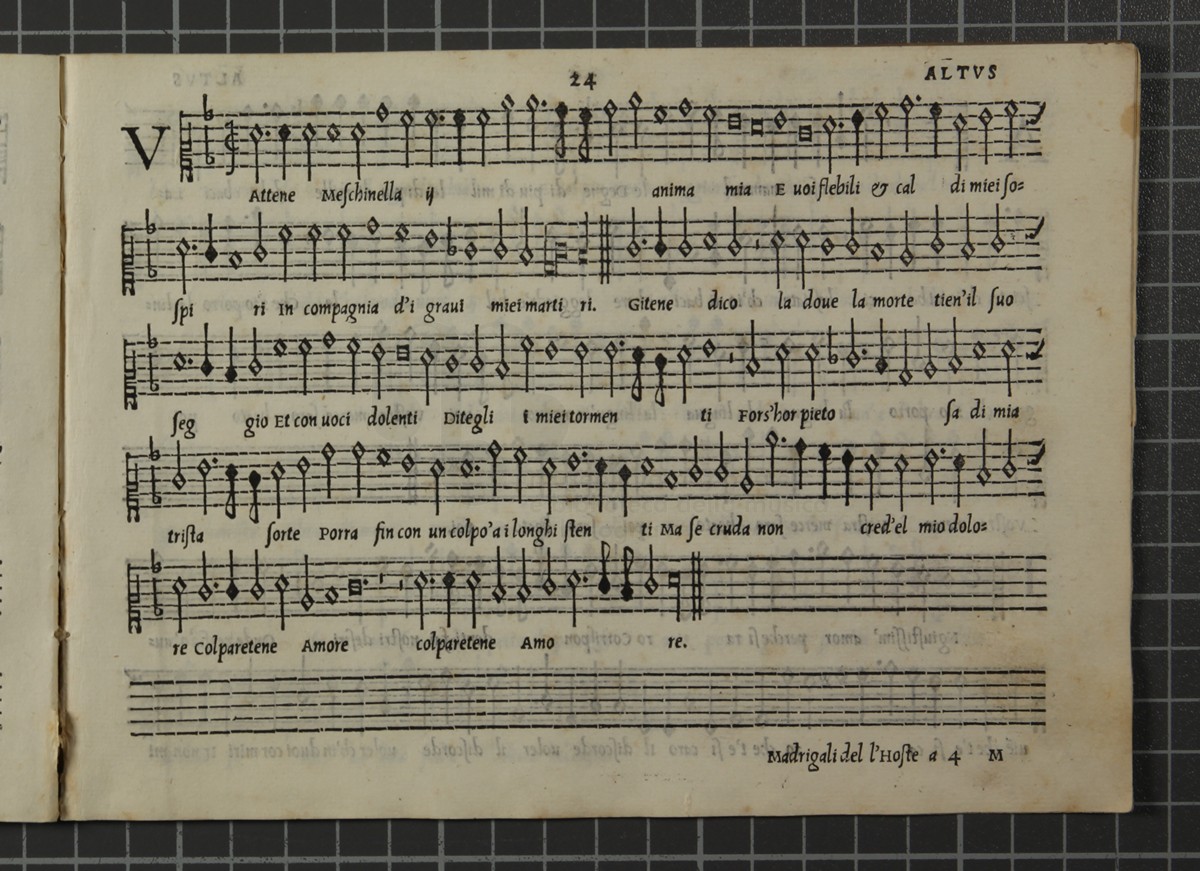 24
ALTVS
V
Attene Meſchinella ij anima mia E uoi flebili & cal di miei ſo=
ſpi ri In compagnia d'i graui miei marti ri. Gitene dico la doue la morte tien'il ſuo
ſeg gio Et con uoci dolenti Ditegli i miei tormen ti Fors'hor pieto ſa di mia
triſta ſorte Porra fin con un colpo'a i longhi ſten ti Ma ſe cruda non cred'el mio dolo=
re Colparetene Amore colparetene Amo re.
Madrigali del l'Hoſte a 4 M